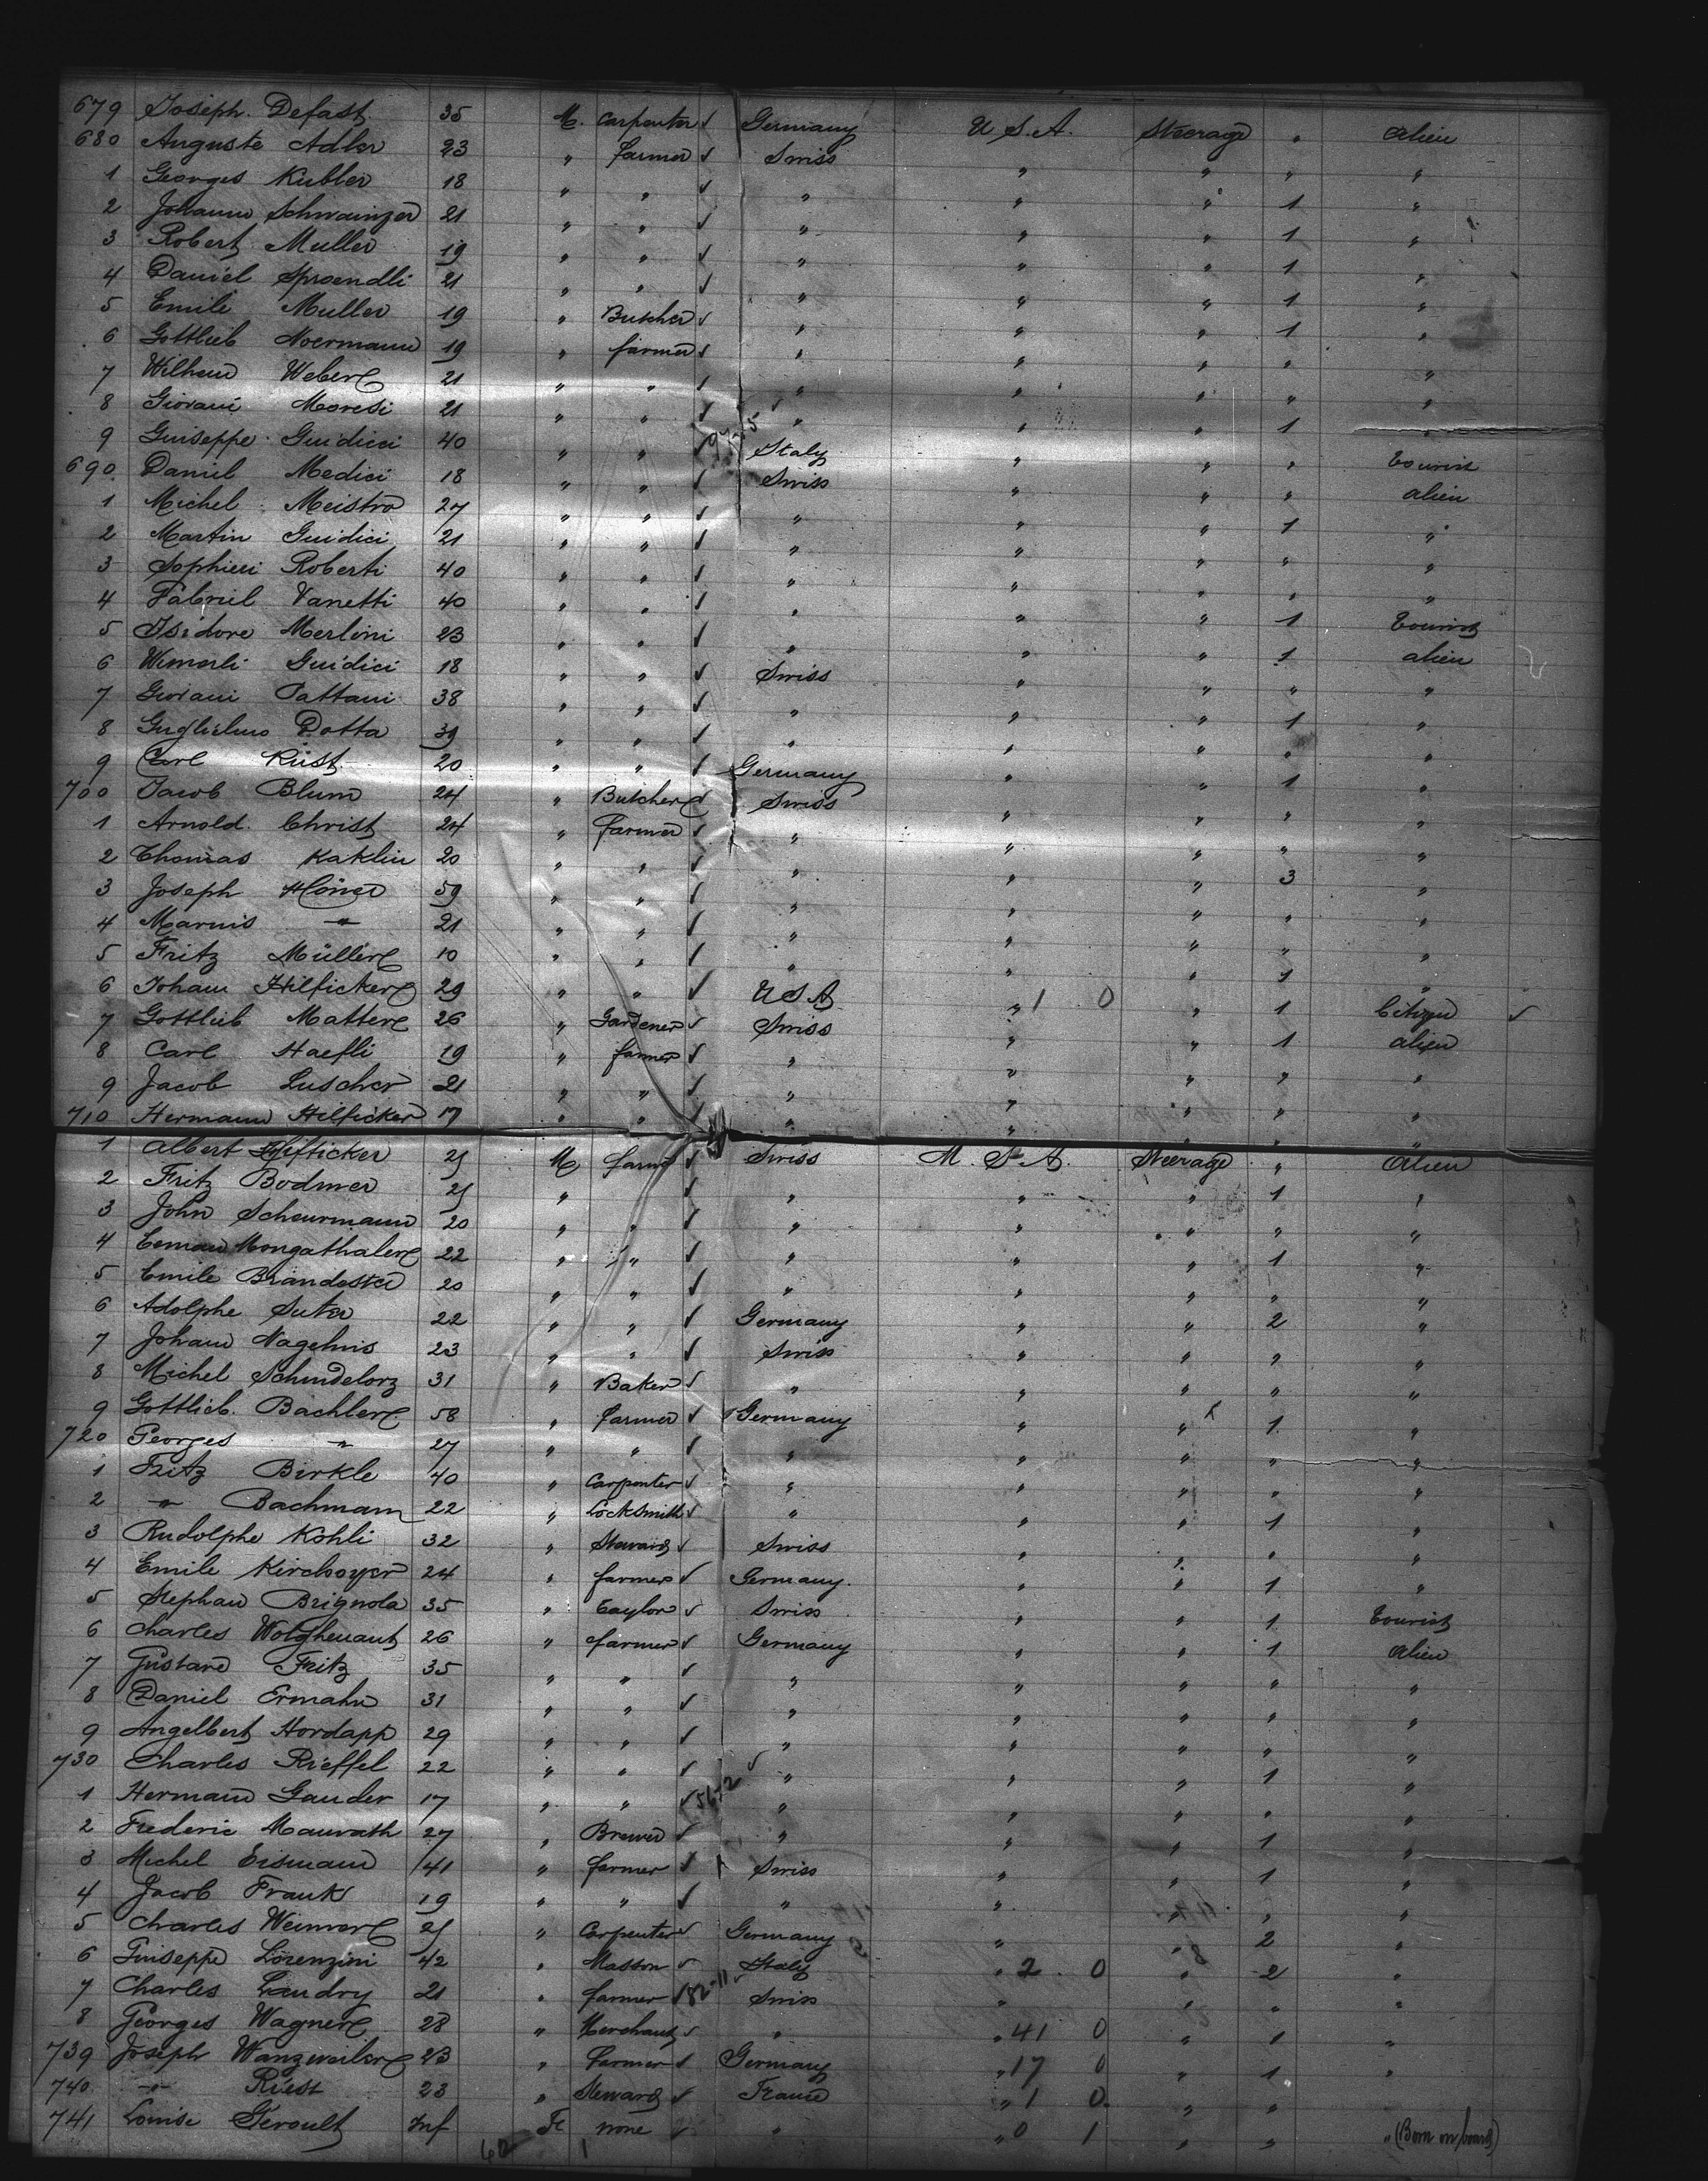 679 Joseph Defast 35 M. Carpenter ✓ Germany U.S.A. Steerage " alien
680 Auguste Adler 23 " farmer ✓ Swiss " " " "
1 Georges Kubler 18 " " ✓ " " " 1 "
2 Johann Schwainzer 21 " " ✓ " " " 1 "
3 Robert Muller 19 " " ✓ " " " 1 "
4 Daniel Sproendli 21 " " ✓ " " " 1 "
5 Emile Muller 19 " Butcher ✓ " " " 1 "
6 Gottlieb Noermann 19 " farmer ✓ " " " " "
7 Wilhem Weber 21 " " ✓ " " " " "
8 Giovani Moresi 21 " " ✓ " " " 1 "
9 Guiseppe Guidici 40 " " ✓ Italy " " " tourist
690 Daniel Medici 18 " " ✓ Swiss " " " alien
1 Michel Meistro 27 " " ✓ " " " 1 "
2 Martin Guidici 21 " " ✓ " " " " "
3 Sophieri Roberti 40 " " ✓ " " " " "
4 Fabriel Vanetti 40 " " ✓ " " " 1 tourist
5 Isidore Merlini 23 " " ✓ " " " 1 alien
6 Guidici 18 " " ✓ Swiss " " " "
7 Giovani Pattani 38 " " ✓ " " " 1 "
8 Guglielmo Dotta 39 " " ✓ " " " " "
9 Carl Rüst 20 " " ✓ Germany " " 1 "
700 Jacob Blum 24 " Butcher ✓ Swiss " " " "
1 Arnold Christ 24 " farmer ✓ " " " " "
2 Thomas Kaklin 20 " " ✓ " " " 3 "
3 Joseph Höner 59 " " ✓ " " " " "
4 Marnis " 21 " " ✓ " " " " "
5 Fritz Müller 10 " " ✓ " " " 1 "
6 Johann Hilficker 29 " " ✓ U S A " 1 0 " 1 Citizen ✓
7 Gottlieb Matter 26 " Gardener ✓ Swiss " " 1 alien
8 Carl Haefli 19 " farmer ✓ " " " " "
9 Jacob Luscher 21 " " ✓ " " " " "
710 Hermann Hilficker 17 " " ✓ " " " " "
1 Albert Hilficker 25 M farmer ✓ Swiss U.S.A. Steerage " Alien
2 Fritz Bodmer 25 " ✓ " " " 1 "
3 John Scheurmann 20 " " ✓ " " " " "
4 Mongathaler 22 " " ✓ " " " 1 "
5 Emile Brandester 20 " " ✓ " " " " "
6 Adolphe Suter 22 " " ✓ Germany " " 2 "
7 Johann Nagelnis 23 " " ✓ Swiss " " " "
8 Michel Schindelorz 31 " Baker ✓ " " " " "
9 Gottlieb Bachler 58 " farmer ✓ Germany " " 1 "
720 Georges " 27 " " ✓ " " " " "
1 Fritz Birkle 40 " Carpenter ✓ " " " " "
2 " Bachmann 22 " Locksmith ✓ " " " 1 "
3 Rudolphe Kohli 32 " Steward ✓ Swiss " " " "
4 Emile Kirchoyer 24 " farmer ✓ Germany. " " 1 "
5 Stephan Brignola 35 " Taylor ✓ Swiss " " 1 tourist
6 Charles Wolghenant 26 " farmer ✓ Germany " " 1 Alien
7 Gustave Fritz 35 " " ✓ " " " " "
8 Daniel Ermahn 31 " " ✓ " " " " "
9 Angelbert Hordapp 29 " " ✓ " " " " "
730 Charles Rieffel 22 " " ✓ " " " 1 "
1 Hermann Gauder 17 " " ✓ " " " " "
2 Frederic Maurath 27 " Brewer ✓ " " " 1 "
3 Michel Eismann 41 " farmer ✓ Swiss " " 1 "
4 Jacob Frank 19 " " ✓ " " " " "
5 Charles Weimer 25 " Carpenter ✓ Germany " " 2 "
6 Guiseppe Lorenzini 42 " Masson ✓ Italy " 2 0 " 2 "
7 Charles Landry 21 " farmer ✓ 82-11 Swiss " " " "
8 Georges Wagner 28 " Merchant ✓ " " 41 0 " 1 "
739 Joseph Wanzweiler 23 " farmer ✓ Germany " 17 0 " 1 "
740 " Riest 23 " Steward ✓ France " 1 0 " "
741 Louise Geroult Inf Fe none ✓ " " 0 1 " " " (Born on board)
62 1